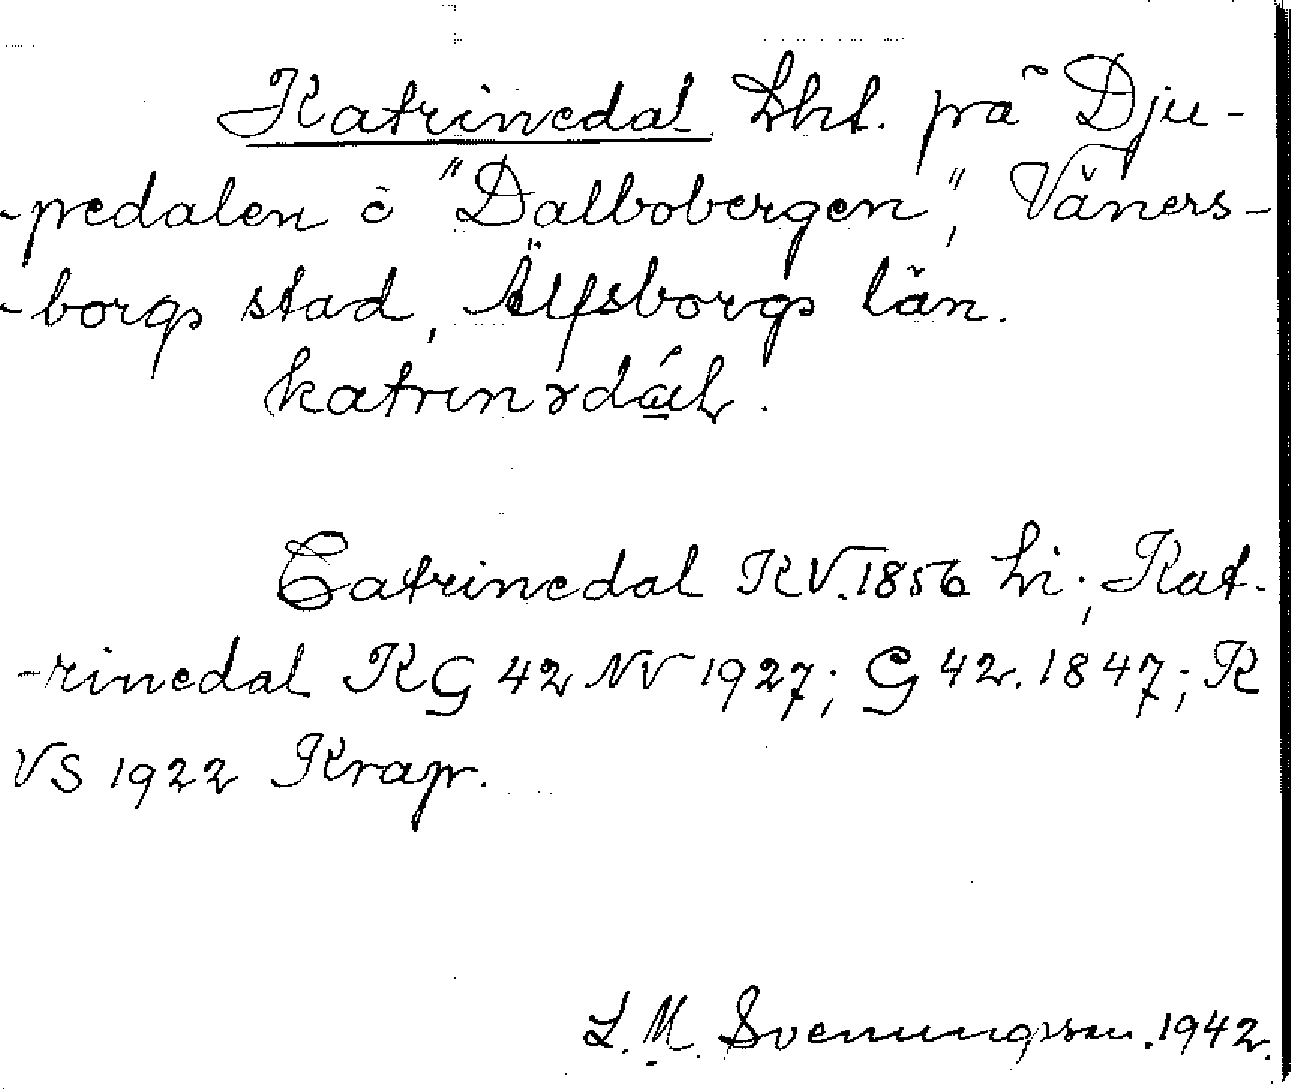 Katrinedal Lht. på Dju-
-pedalen i "Dalbobergen", Väners-
-borgs stad, Älfsborgs län.
katrinədáL.
Catrinedal KV.1856 hi; Kat-
-rinedal KG 42 NV 1927; G 42.1847; R
VS 1922 Krap.
L. M. Svenungsson.1942.